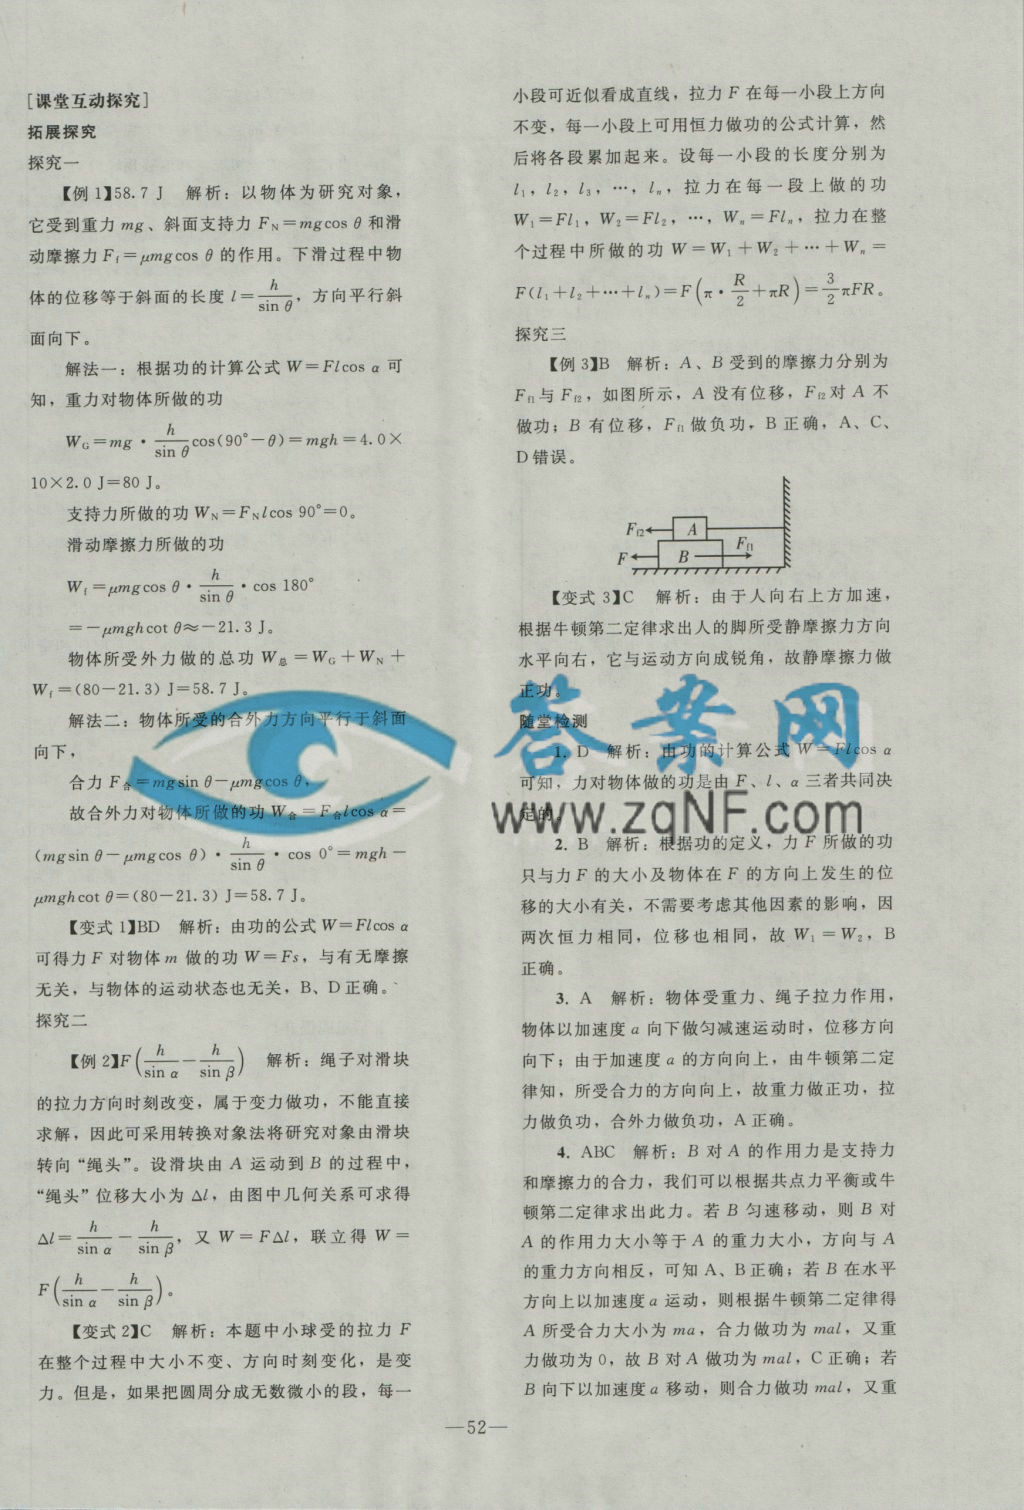 [课堂互动探究]
拓展探究
探究一
【例 1】58.7 J　解析：以物体为研究对象，
它受到重力 mg、斜面支持力 F_N＝mgcos θ 和滑
动摩擦力 F_f＝μmgcos θ 的作用。下滑过程中物
体的位移等于斜面的长度 l＝h/sin θ，方向平行斜
面向下。
解法一：根据功的计算公式 W＝Flcos α 可
知，重力对物体所做的功
W_G＝mg·h/sin θ cos(90°－θ)＝mgh＝4.0×
10×2.0 J＝80 J。
支持力所做的功 W_N＝F_N lcos 90°＝0。
滑动摩擦力所做的功
W_f＝μmgcos θ·h/sin θ·cos 180°
＝－μmghcot θ≈－21.3 J。
物体所受外力做的总功 W_总＝W_G＋W_N＋
W_f＝(80－21.3) J＝58.7 J。
解法二：物体所受的合外力方向平行于斜面
向下，
合力 F_合＝mgsin θ－μmgcos θ，
故合外力对物体所做的功 W_合＝F_合 lcos α＝
(mgsin θ－μmgcos θ)·h/sin θ·cos 0°＝mgh－
μmghcot θ＝(80－21.3) J＝58.7 J。
【变式 1】BD　解析：由功的公式 W＝Flcos α
可得力 F 对物体 m 做的功 W＝Fs，与有无摩擦
无关，与物体的运动状态也无关，B、D 正确。
探究二
【例 2】F(h/sin α－h/sin β)　解析：绳子对滑块
的拉力方向时刻改变，属于变力做功，不能直接
求解，因此可采用转换对象法将研究对象由滑块
转向“绳头”。设滑块由 A 运动到 B 的过程中，
“绳头”位移大小为 Δl，由图中几何关系可求得
Δl＝h/sin α－h/sin β，又 W＝FΔl，联立得 W＝
F(h/sin α－h/sin β)。
【变式 2】C　解析：本题中小球受的拉力 F
在整个过程中大小不变、方向时刻变化，是变
力。但是，如果把圆周分成无数微小的段，每一
小段可近似看成直线，拉力 F 在每一小段上方向
不变，每一小段上可用恒力做功的公式计算，然
后将各段累加起来。设每一小段的长度分别为
l₁，l₂，l₃，…，lₙ，拉力在每一段上做的功
W₁＝Fl₁，W₂＝Fl₂，…，Wₙ＝Flₙ，拉力在整
个过程中所做的功 W＝W₁＋W₂＋…＋Wₙ＝
F(l₁＋l₂＋…＋lₙ)＝F(π·R/2＋πR)＝3/2 πFR。
探究三
【例 3】B　解析：A、B 受到的摩擦力分别为
F_f1 与 F_f2，如图所示，A 没有位移，F_f2 对 A 不
做功；B 有位移，F_f1 做负功，B 正确，A、C、
D 错误。
F_f2 A
F B F_f1
【变式 3】C　解析：由于人向右上方加速，
根据牛顿第二定律求出人的脚所受静摩擦力方向
水平向右，它与运动方向成锐角，故静摩擦力做
正功。
随堂检测
1. D　解析：由功的计算公式 W＝Flcos α
可知，力对物体做的功是由 F、l、α 三者共同决
定的。
2. B　解析：根据功的定义，力 F 所做的功
只与力 F 的大小及物体在 F 的方向上发生的位
移的大小有关，不需要考虑其他因素的影响，因
两次恒力相同，位移也相同，故 W₁＝W₂，B
正确。
3. A　解析：物体受重力、绳子拉力作用，
物体以加速度 a 向下做匀减速运动时，位移方向
向下；由于加速度 a 的方向向上，由牛顿第二定
律知，所受合力的方向向上，故重力做正功，拉
力做负功，合外力做负功，A 正确。
4. ABC　解析：B 对 A 的作用力是支持力
和摩擦力的合力，我们可以根据共点力平衡或牛
顿第二定律求出此力。若 B 匀速移动，则 B 对
A 的作用力大小等于 A 的重力大小，方向与 A
的重力方向相反，可知 A、B 正确；若 B 在水平
方向上以加速度 a 运动，则根据牛顿第二定律得
A 所受合力大小为 ma，合力做功为 mal，又重
力做功为 0，故 B 对 A 做功为 mal，C 正确；若
B 向下以加速度 a 移动，则合力做功 mal，又重
答案网
www.zqNF.com
—52—